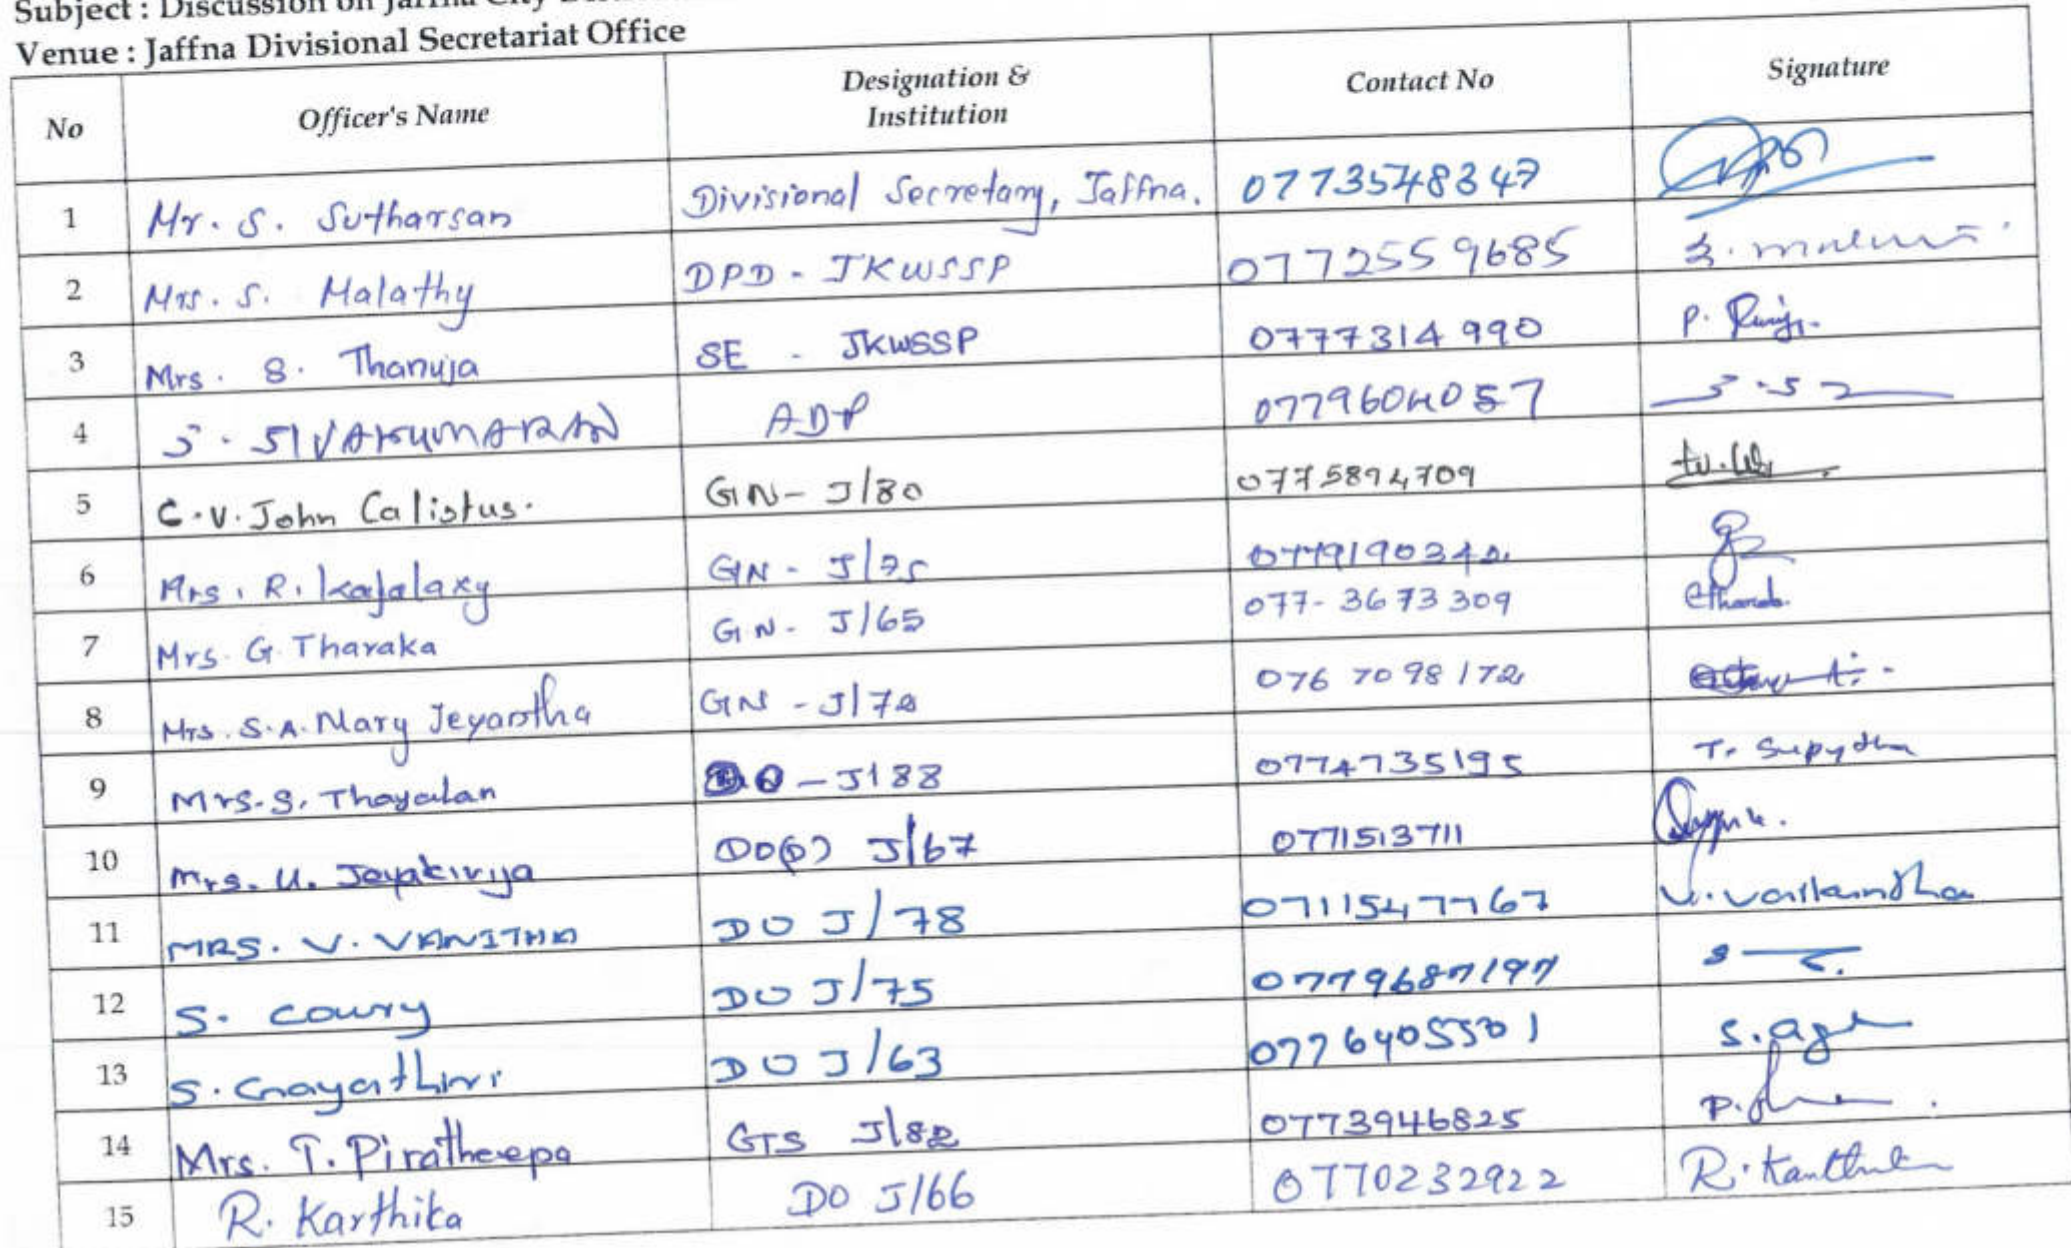 Subject : Discussion on Jaffna City
Venue : Jaffna Divisional Secretariat Office
No Officer's Name Designation & Institution Contact No Signature
1 Mr. S. Sutharsan Divisional Secretary, Jaffna. 0773548347
2 Mrs. S. Malathy DPD - JKWSSP 0772559685
3 Mrs. S. Thanuja SE - JKWSSP 0777314990
4 S. SIVAKUMARAN ADP 0779604057
5 C.V. John Calistus. GN- J/80 0775894709
6 Mrs. R. Kajalaxy GN - 
7 Mrs. G. Tharaka GN- J/65 077-3673309
8 Mrs. S.A. Mary GN - 076 7098172
9 Mrs. S. Thayalan - J188 0774735195
10 Mrs. U. J/67 0771513711
11 MRS. V. VANITHA DO J/78 0711547767
12 S. Cowry DO J/75 0779687197 S
13 S. Gayathiri DO J/63 S.
14 Mrs. T. Piratheepa GTS J/82 0773946825 P.
15 R. Karthika DO J/66 0770232922 R.